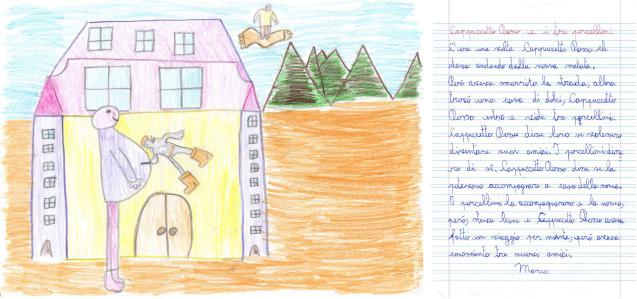 Cappuccetto Rosso e i tre porcellini.
C'era una volta Cappuccetto Rosso, che
stava andando dalla nonna malata.
Però aveva smarrito la strada, allora
trovò una casa di dolci, Cappuccetto
Rosso entrò e vide tre porcellini.
Cappuccetto Rosso disse loro se volevano
diventare suoi amici. I porcellini disse
ro di sì, Cappuccetto Rosso disse se la
potevano accompagnare a casa della nonna.
I porcellini la accompagnarono e la nonna,
però, stava bene e Cappuccetto Rosso aveva
fatto un viaggio per niente, però aveva
conosciuto tre nuovi amici.